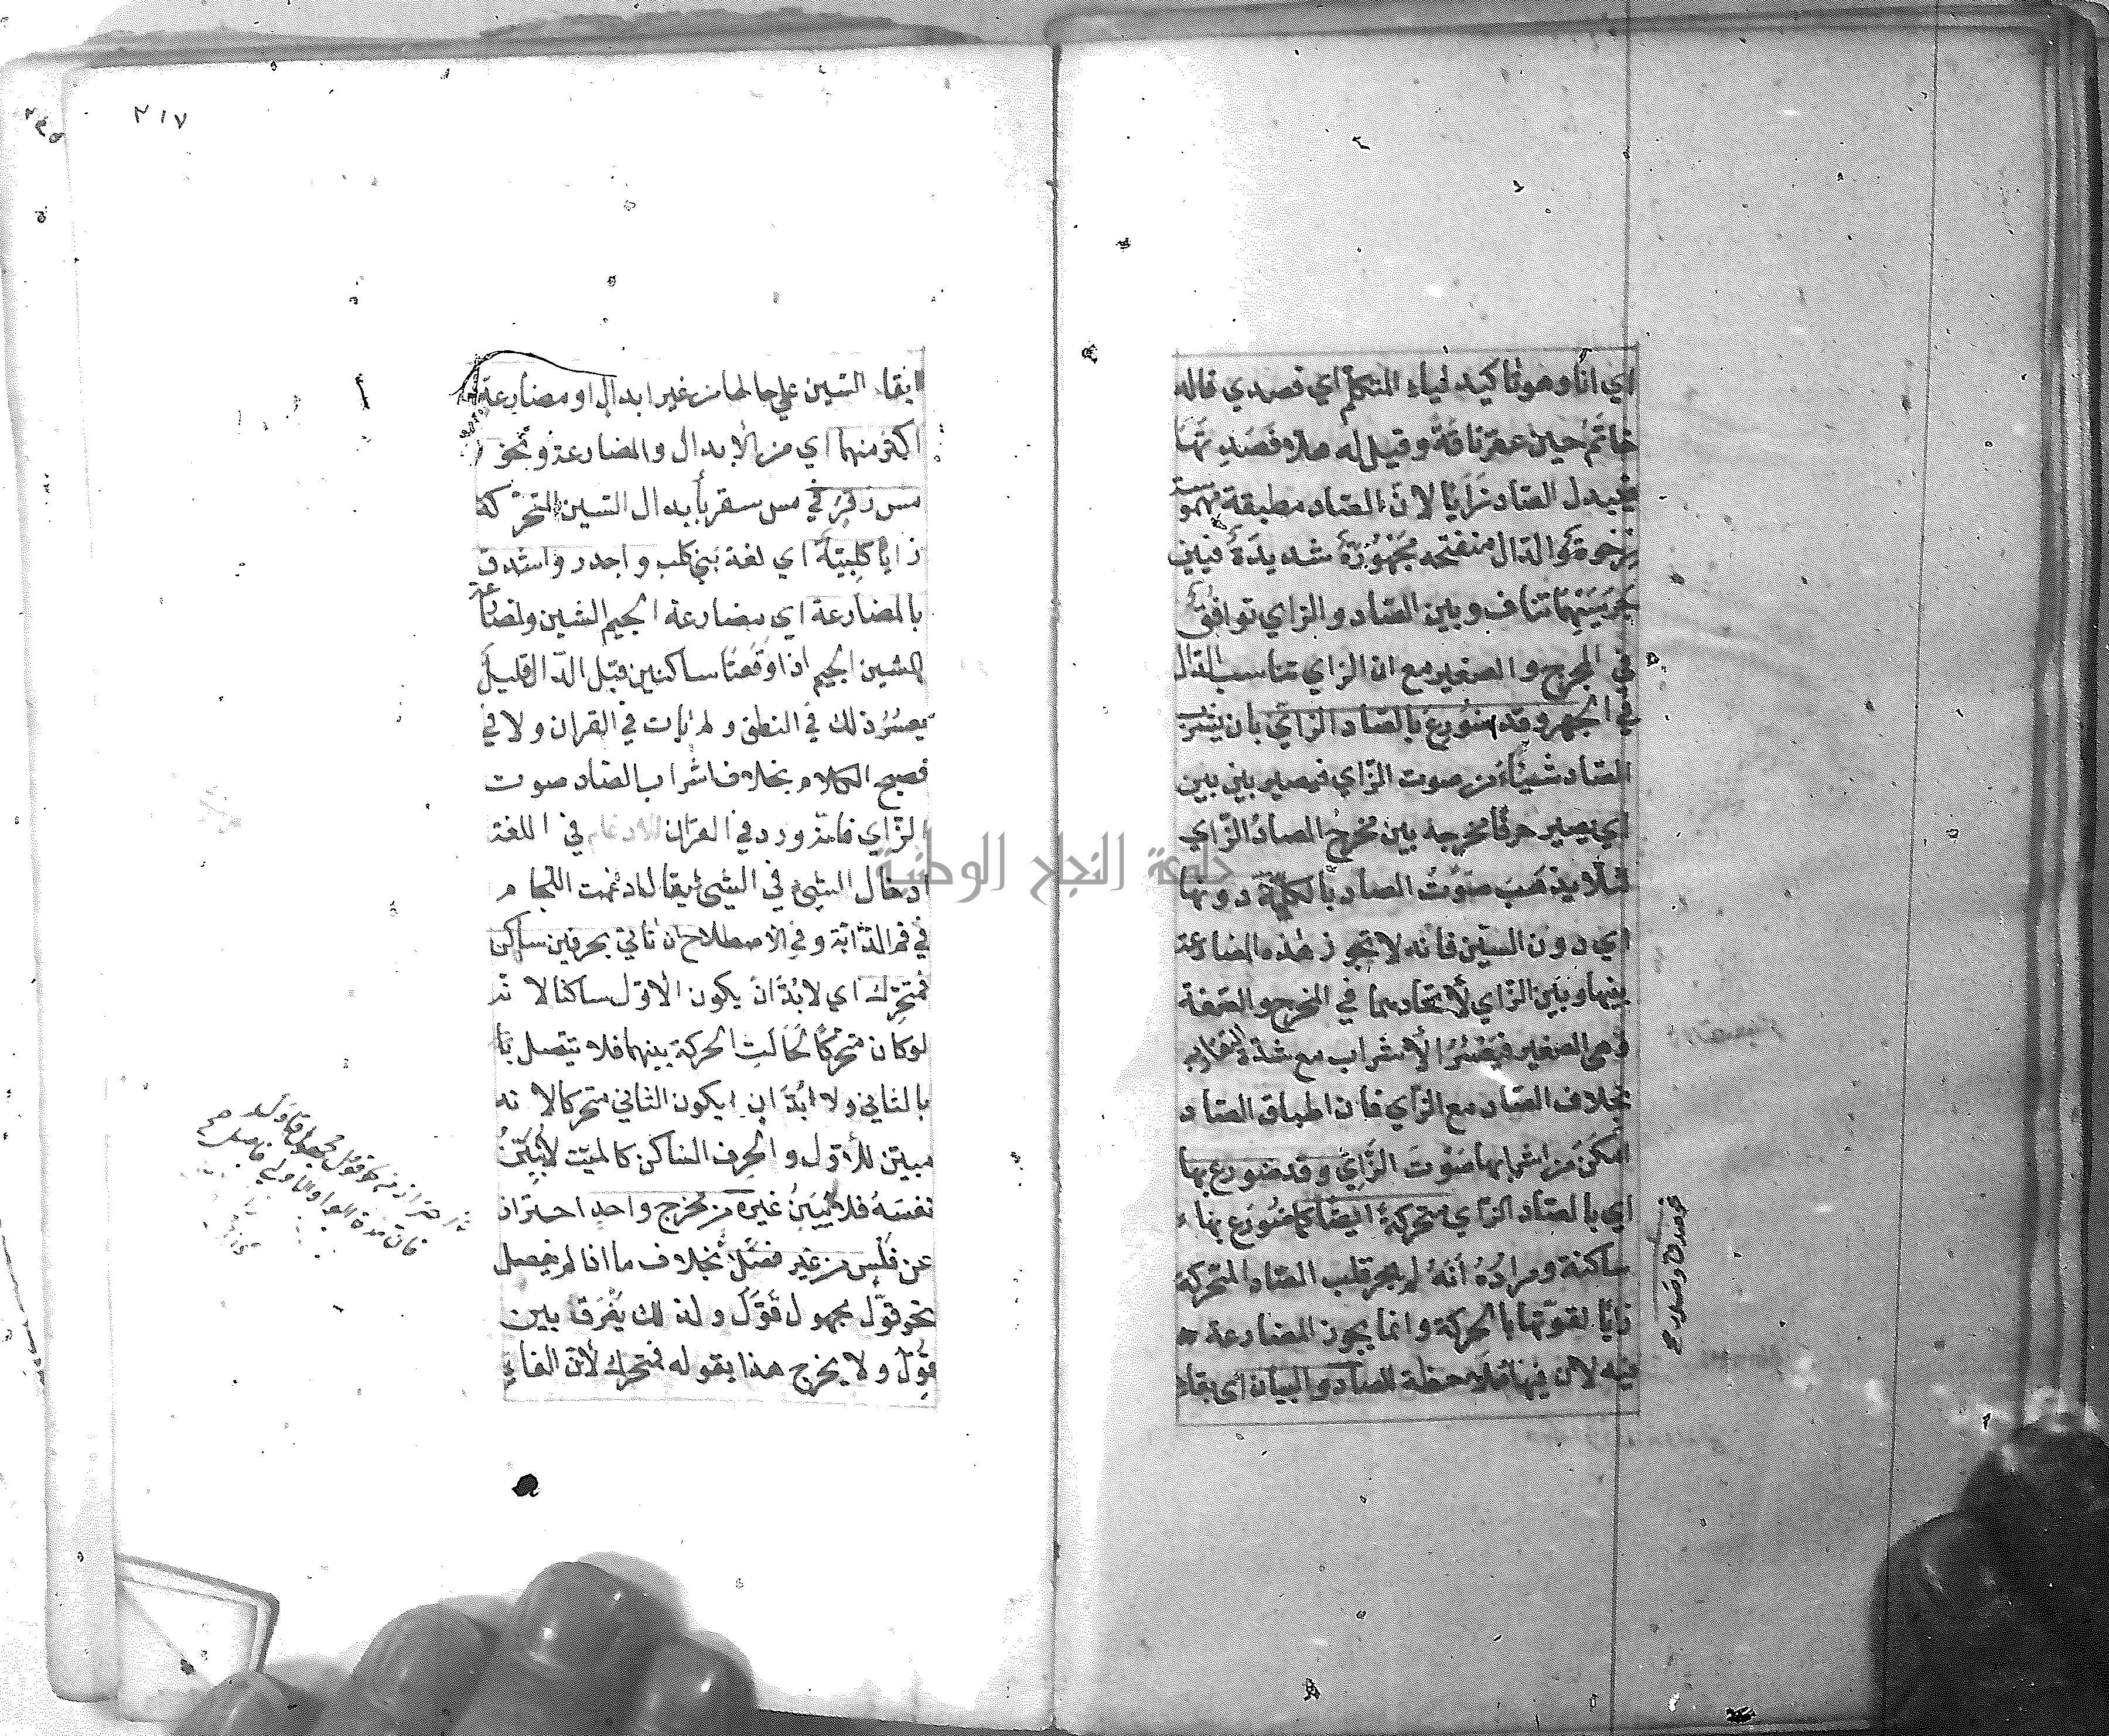 اي انا وهو تاكيد لياء المتكلم اي قصدي قاله
حاتم حين عقر ناقة وقيل له هلا فصدتها
فيبدل الصاد زايا لان الصاد مطبقة مهموسة
رخوة والدال منفتحة مجهورة شديدة فبين
جرسيهما تناف وبين الصاد والزاي توافق
في المخرج والصفير مع ان الزاي تناسب الدال
في الجهر وقد ضورع بالصاد الزاي بان يشرب
الصاد شيئا من صوت الزاي فيصير بين بين
اي يصير حرفا مخرجه بين مخرج الصاد الزاي
لئلا يذهب صوت الصاد بالكلية دونها
اي دون السين فانه لا تجوز هذه المضارعة
بينها وبين الزاي لاتحادهما في المخرج والصفة
وهي الصفير فيعسر الاشراب مع شدة التقارب
بخلاف الصاد مع الزاي فان اطباق الصاد
امكن من اشرابها صوت الزاي وقد ضورع بها
اي بالصاد الزاي متحركة ايضا كما ضورع بها
ساكنة ومراده انه لم يجز قلب الصاد المتحركة
زايا لقوتها بالحركة وانما يجوز المضارعة
فيه لان فيها ملاحظة للصاد والبيان اي بقاء
نحو صدق وصدر صح
٢١٧
ابقاء السين علي حالها من غير ابدال او مضارعة
اكثر منهما اي من الابدال والمضارعة ونحو
مس زقر في مس سقر بابدال السين المتحركة
زايا كلبية اي لغة بني كلب واجدر واشدق
بالمضارعة اي بمضارعة الجيم الشين ومضارعة
الشين الجيم اذا وقعتا ساكنين قبل الدال قليل
يعسر ذلك في النطق ولم يات في القران ولا في
فصيح الكلام بخلاف اشراب الصاد صوت
الزاي فانه ورد في القران الادغام في اللغة
ادخال الشيء في الشيء يقال ادغمت اللجام
في فم الدابة وفي الاصطلاح ان تاتي بحرفين ساكن
فمتحرك اي لا بد ان يكون الاول ساكنا لانه
لو كان متحركا لحالت الحركة بينهما فلا يتصل
بالثاني ولا بد ان يكون الثاني متحركا لانه
مبين للاول والحرف الساكن كالميت لا يبين
نفسه فلا يبين غيره من مخرج واحد احتراز
عن فلس من غير فصل بخلاف ما اذا لم يفصل
نحو قول مجهول قول ولذلك يفرق بين
قول ولا يخرج هذا بقوله فمتحرك لان الفاء